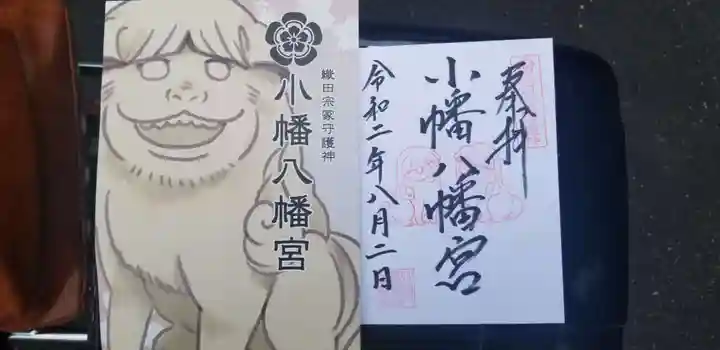 小幡八幡宮
織田宗家守護神
奉拝
小幡八幡宮
令和二年八月二日